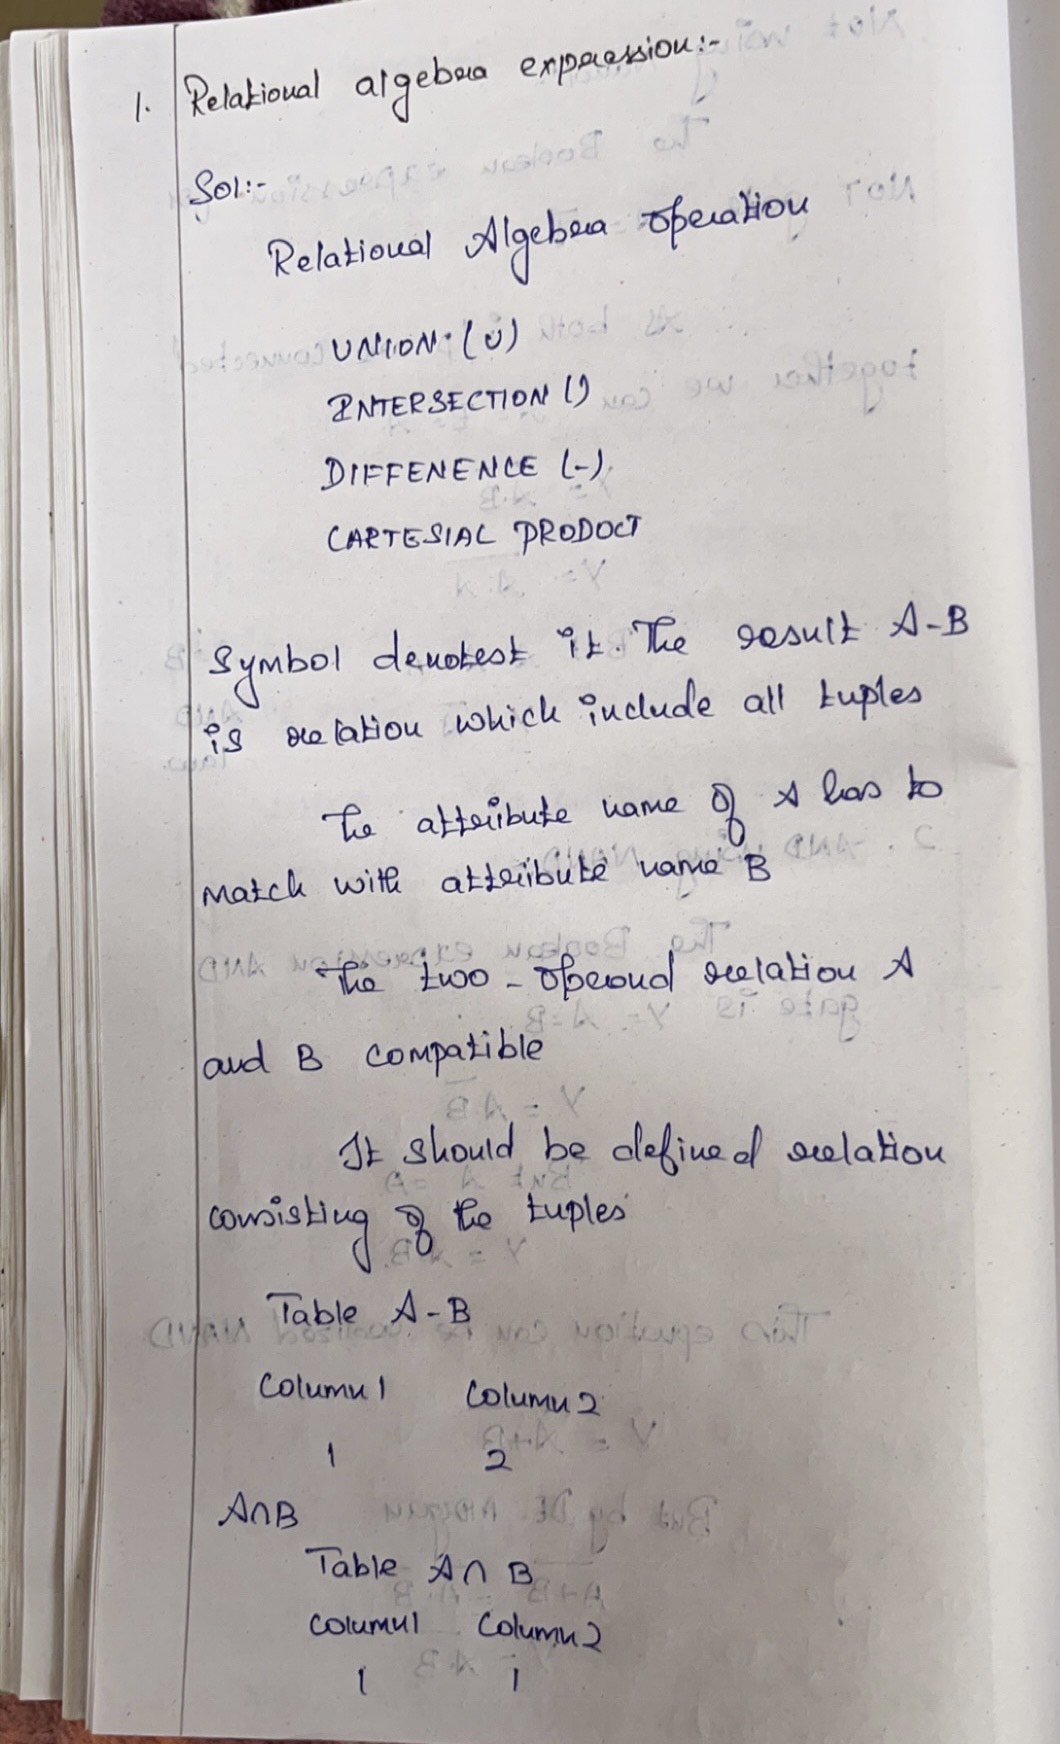 1. Relational algebra expression:-
Sol:-
Relational Algebra operation
UNION (U)
INTERSECTION ()
DIFFENENCE (-)
CARTESIAL PRODOCT
Symbol denotest it. The result A-B
is relation which include all tuples
The attribute name of A has to
match with attribute name B
The two-operand relation A
and B compatible
It should be defined relation
consisting of the tuples
Table A-B
Column 1 Column 2
1 2
A∩B
Table A∩B
Column 1 Column 2
1 1